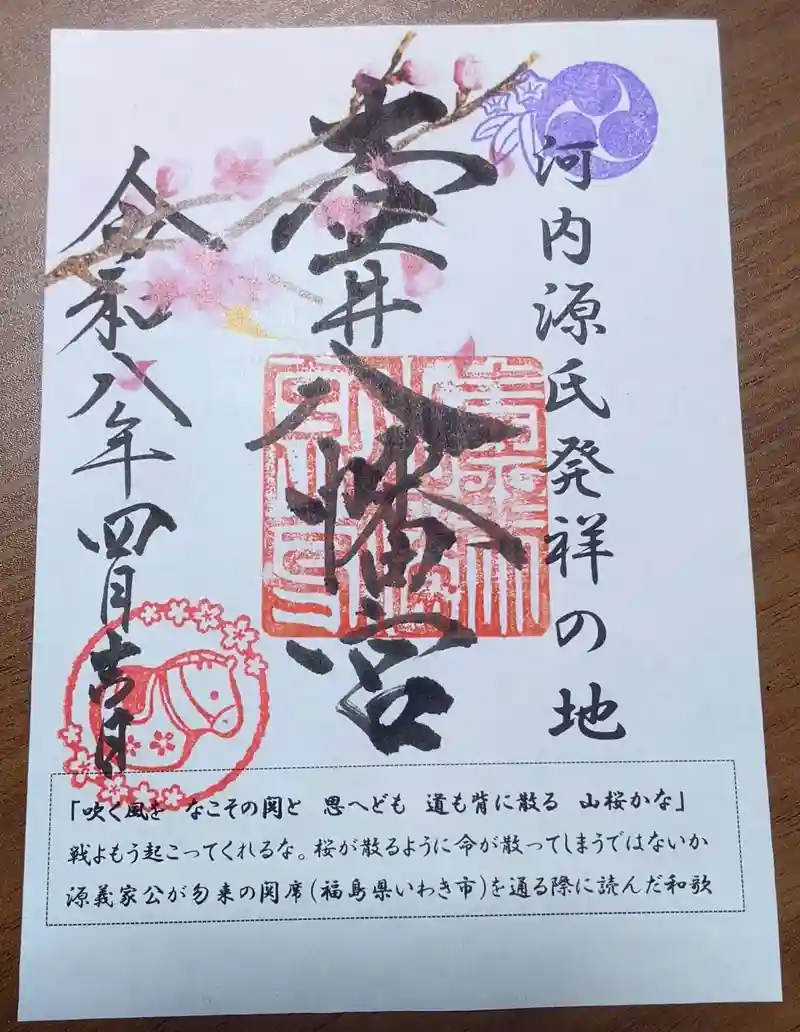 河内源氏発祥の地
壷井八幡宮
令和八年四月吉日
「吹く風を なこその関と 思へども 道も背に散る 山桜かな」
戦よもう起こってくれるな。桜が散るように命が散ってしまうではないか
源義家公が勿来の関席(福島県いわき市)を通る際に読んだ和歌